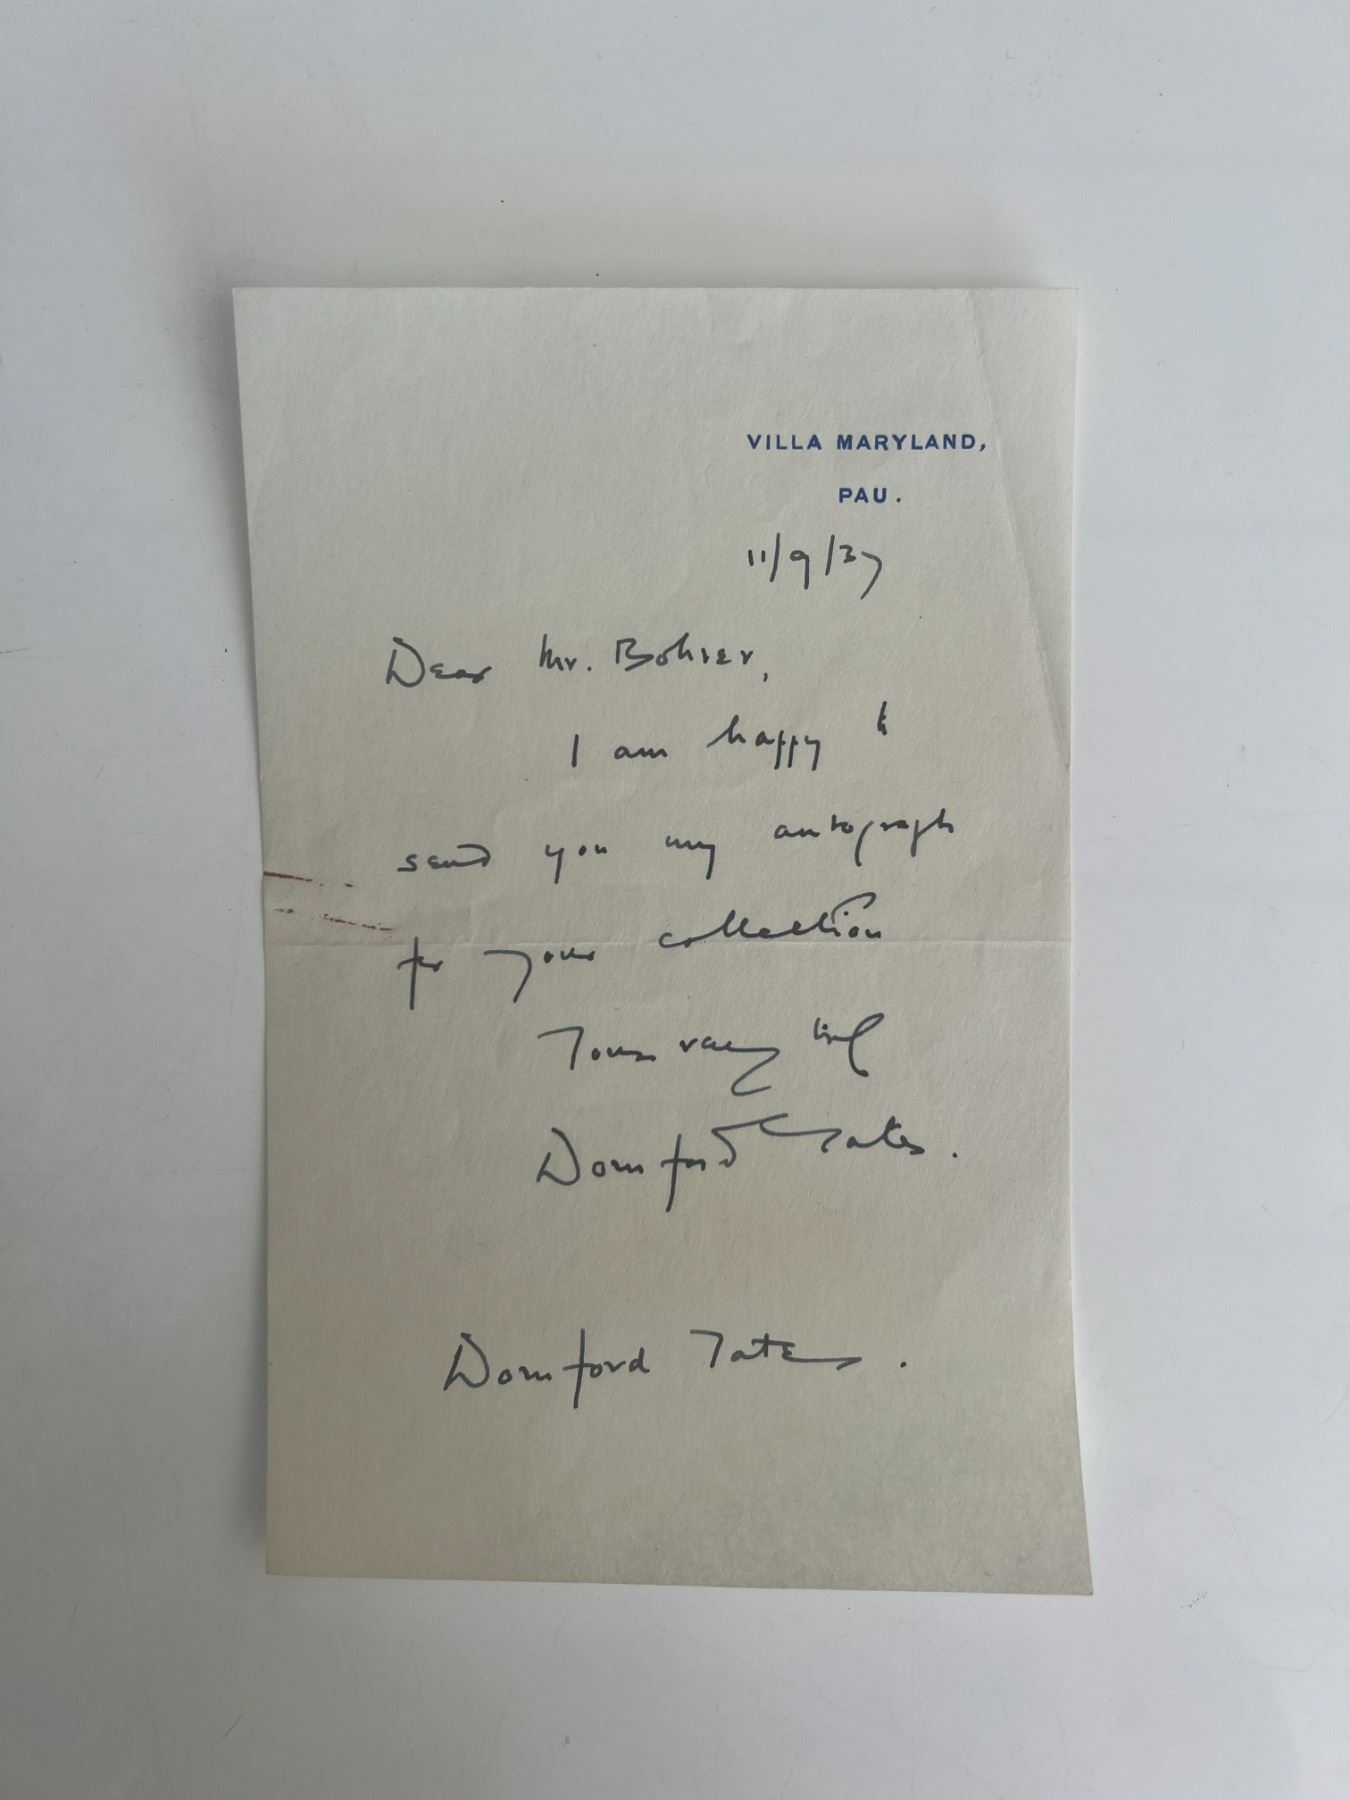 VILLA MARYLAND,
PAU.
11/9/37
Dear Mr. Bohrer,
I am happy to
send you my autograph
for your collection
Yours very truly
Dornford Yates.
Dornford Yates.